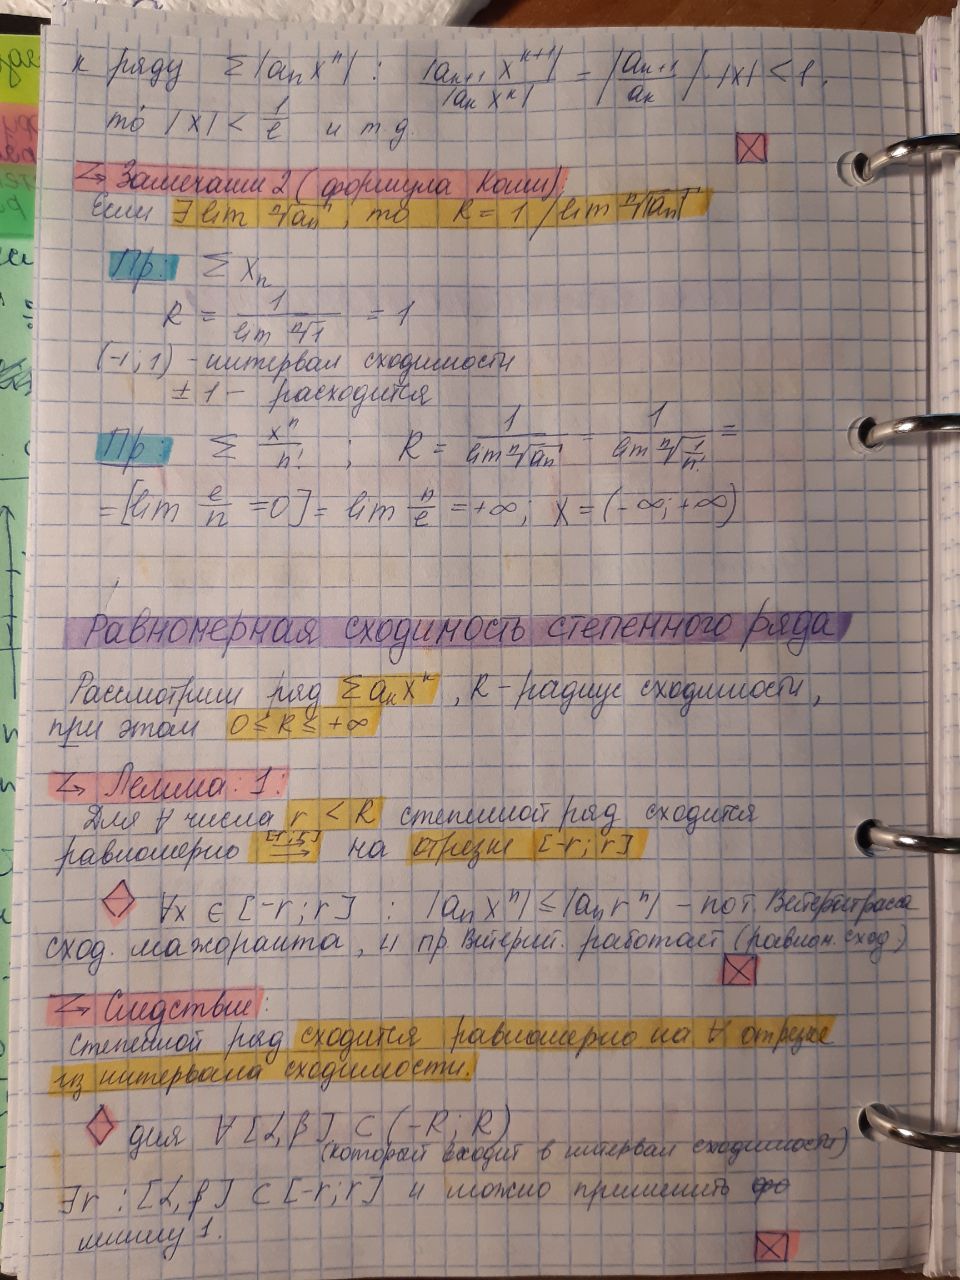 к ряду Σ|aₙxⁿ| : |aₙ₊₁ xⁿ⁺¹| / |aₙ xⁿ| = |aₙ₊₁ / aₙ| · |x| < 1,
то |x| < 1/ℓ и т.д.
↳ Замечание 2 (формула Коши):
Если ∃ lim ⁿ√aₙ, то R = 1 / lim ⁿ√|aₙ|
Пр: Σ xₙ
R = 1 / lim ⁿ√1 = 1
(-1; 1) - интервал сходимости
± 1 - расходится
Пр: Σ xⁿ/n! ; R = 1 / lim ⁿ√aₙ = 1 / lim ⁿ√(1/n!) =
= [lim e/n = 0] = lim n/e = +∞; X = (-∞; +∞)
Равномерная сходимость степенного ряда
Рассмотрим ряд Σ aₙxⁿ, R - радиус сходимости,
при этом 0 ≤ R ≤ +∞
↳ Лемма 1:
Для ∀ числа r < R степенной ряд сходится
равномерно ⇉ на отрезке [-r; r]
∀x ∈ [-r; r] : |aₙxⁿ| ≤ |aₙrⁿ| - по т. Вейерштрасса
сход. мажоранта, и пр. Вейерш. работает (равном. сход.)
↳ Следствие:
степенной ряд сходится равномерно на ∀ отрезке
из интервала сходимости.
для ∀ [α, β] ⊂ (-R; R)
(который входит в интервал сходимости)
∃r : [α, β] ⊂ [-r; r] и можно применить
лемму 1.